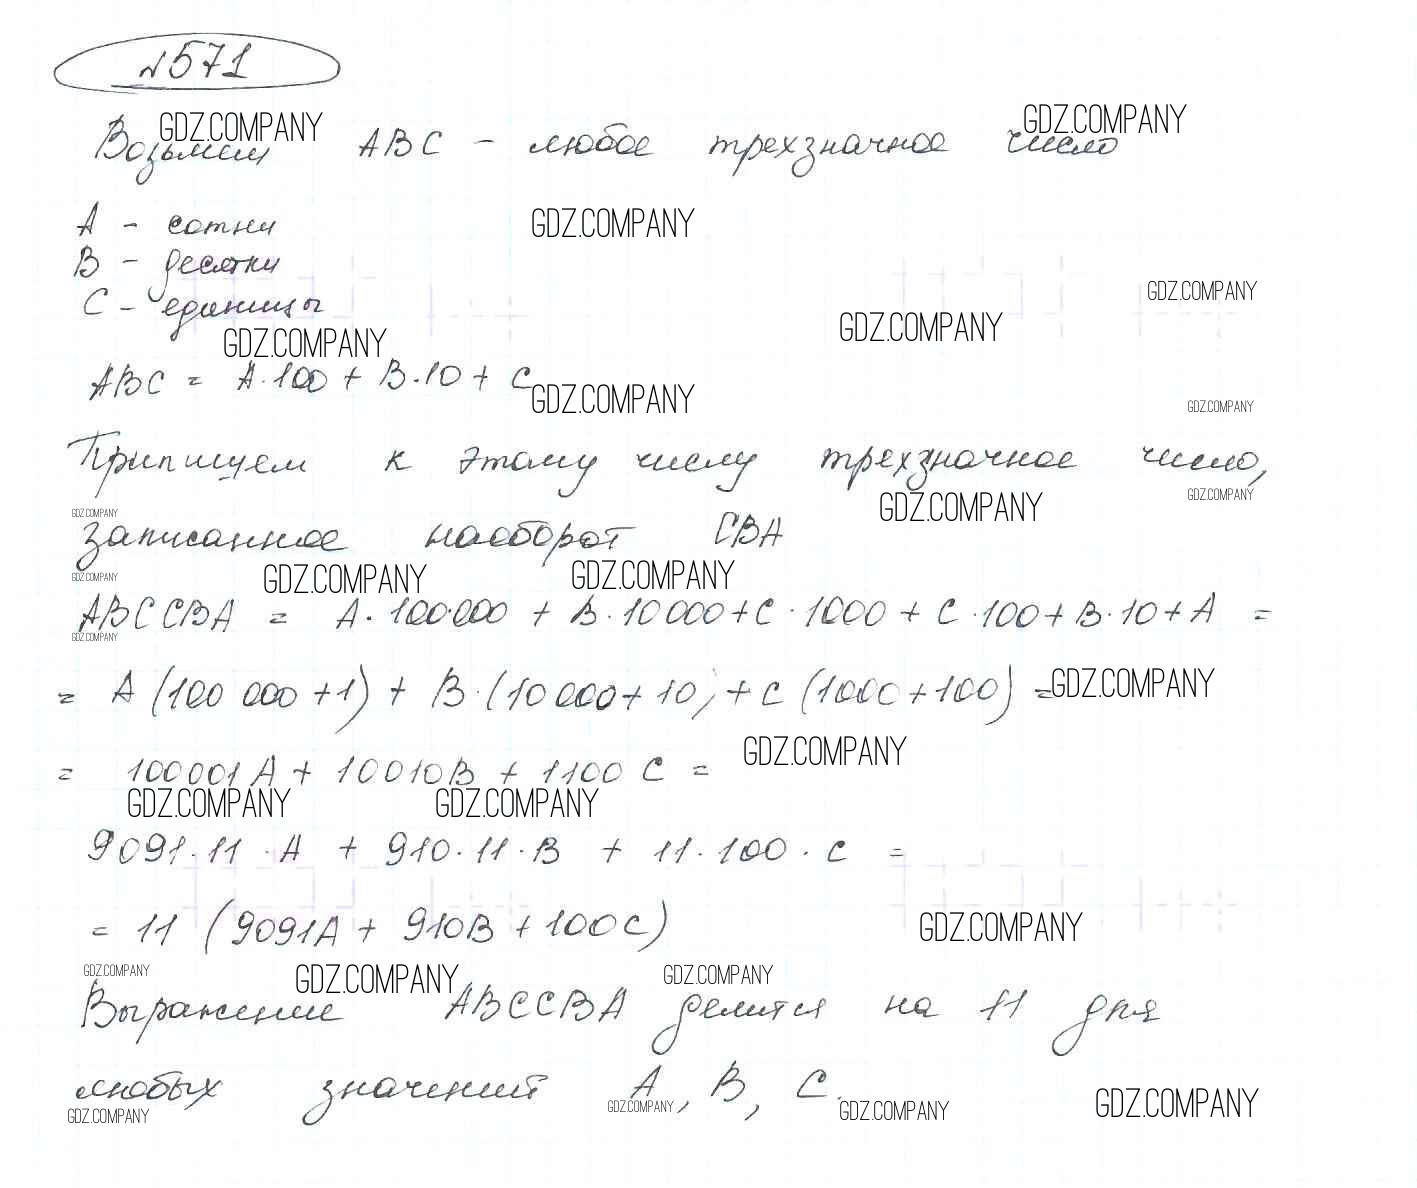 №571
GDZ.COMPANY GDZ.COMPANY
Возьмем ABC - любое трехзначное число
A - сотни GDZ.COMPANY
B - десятки
C - единицы GDZ.COMPANY
GDZ.COMPANY GDZ.COMPANY
ABC = A·100 + B·10 + C GDZ.COMPANY GDZ.COMPANY
Припишем к этому числу трехзначное число,
GDZ.COMPANY GDZ.COMPANY GDZ.COMPANY
записанное наоборот CBA
GDZ.COMPANY GDZ.COMPANY GDZ.COMPANY
ABCCBA = A·100000 + B·10000 + C·1000 + C·100 + B·10 + A =
GDZ.COMPANY
= A (100 000 + 1) + B·(10000 + 10) + C (1000 + 100) = GDZ.COMPANY
GDZ.COMPANY
= 100001 A + 10010B + 1100 C =
GDZ.COMPANY GDZ.COMPANY
9091·11·A + 910·11·B + 11·100·C =
= 11 (9091A + 910B + 100C) GDZ.COMPANY
GDZ.COMPANY GDZ.COMPANY GDZ.COMPANY
Выражение ABCCBA делится на 11 для
любых значений A, B, C.
GDZ.COMPANY GDZ.COMPANY GDZ.COMPANY GDZ.COMPANY